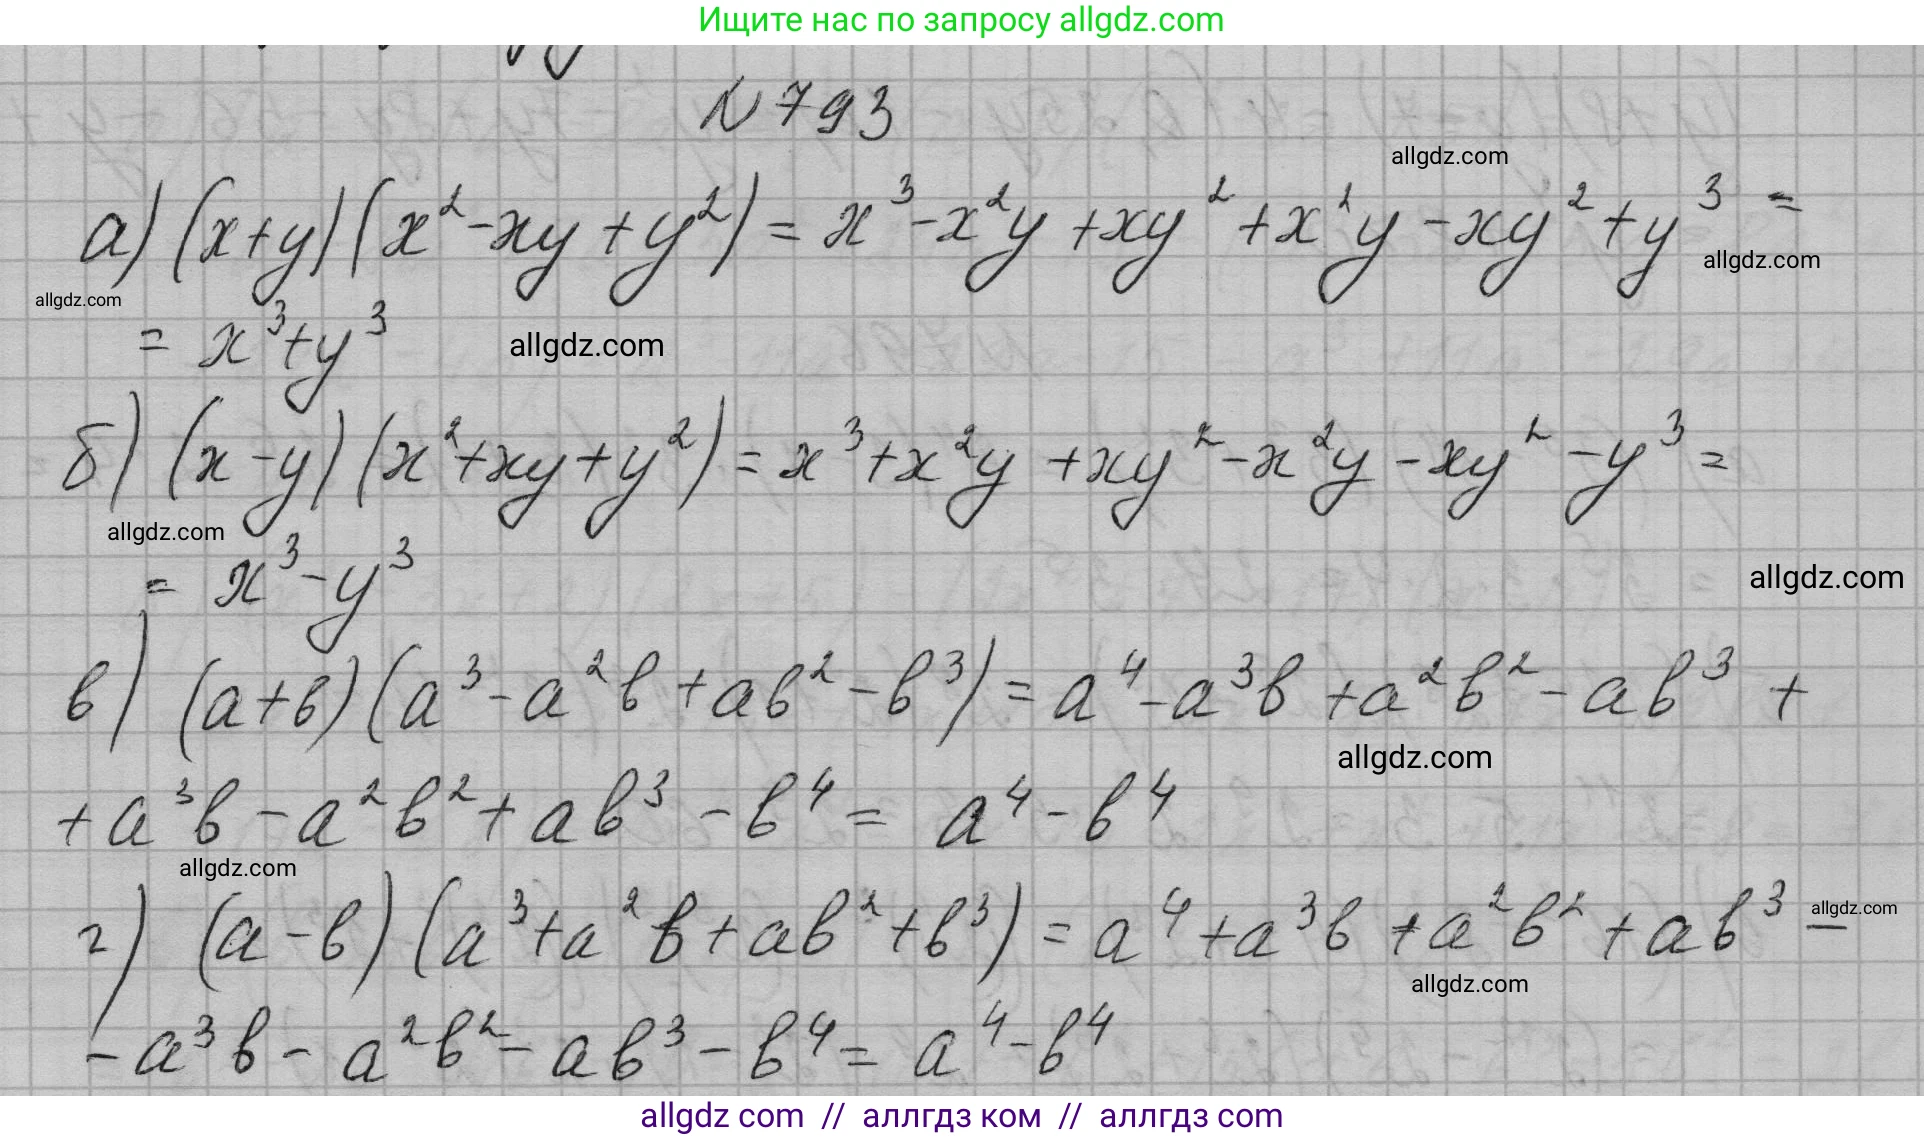 Ищите нас по запросу allgdz.com
N 793
allgdz.com
а) (x+y)(x²-xy+y²) = x³-x²y+xy²+x²y-xy²+y³ =
allgdz.com
allgdz.com
= x³+y³
allgdz.com
б) (x-y)(x²+xy+y²) = x³+x²y+xy²-x²y-xy²-y³ =
allgdz.com
= x³-y³
allgdz.com
в) (a+b)(a³-a²b+ab²-b³) = a⁴-a³b+a²b²-ab³ +
allgdz.com
+a³b-a²b²+ab³-b⁴ = a⁴-b⁴
allgdz.com
г) (a-b)(a³+a²b+ab²+b³) = a⁴+a³b+a²b²+ab³ -
allgdz.com
allgdz.com
-a³b-a²b²-ab³-b⁴ = a⁴-b⁴
allgdz com // аллгдз ком // аллгдз com